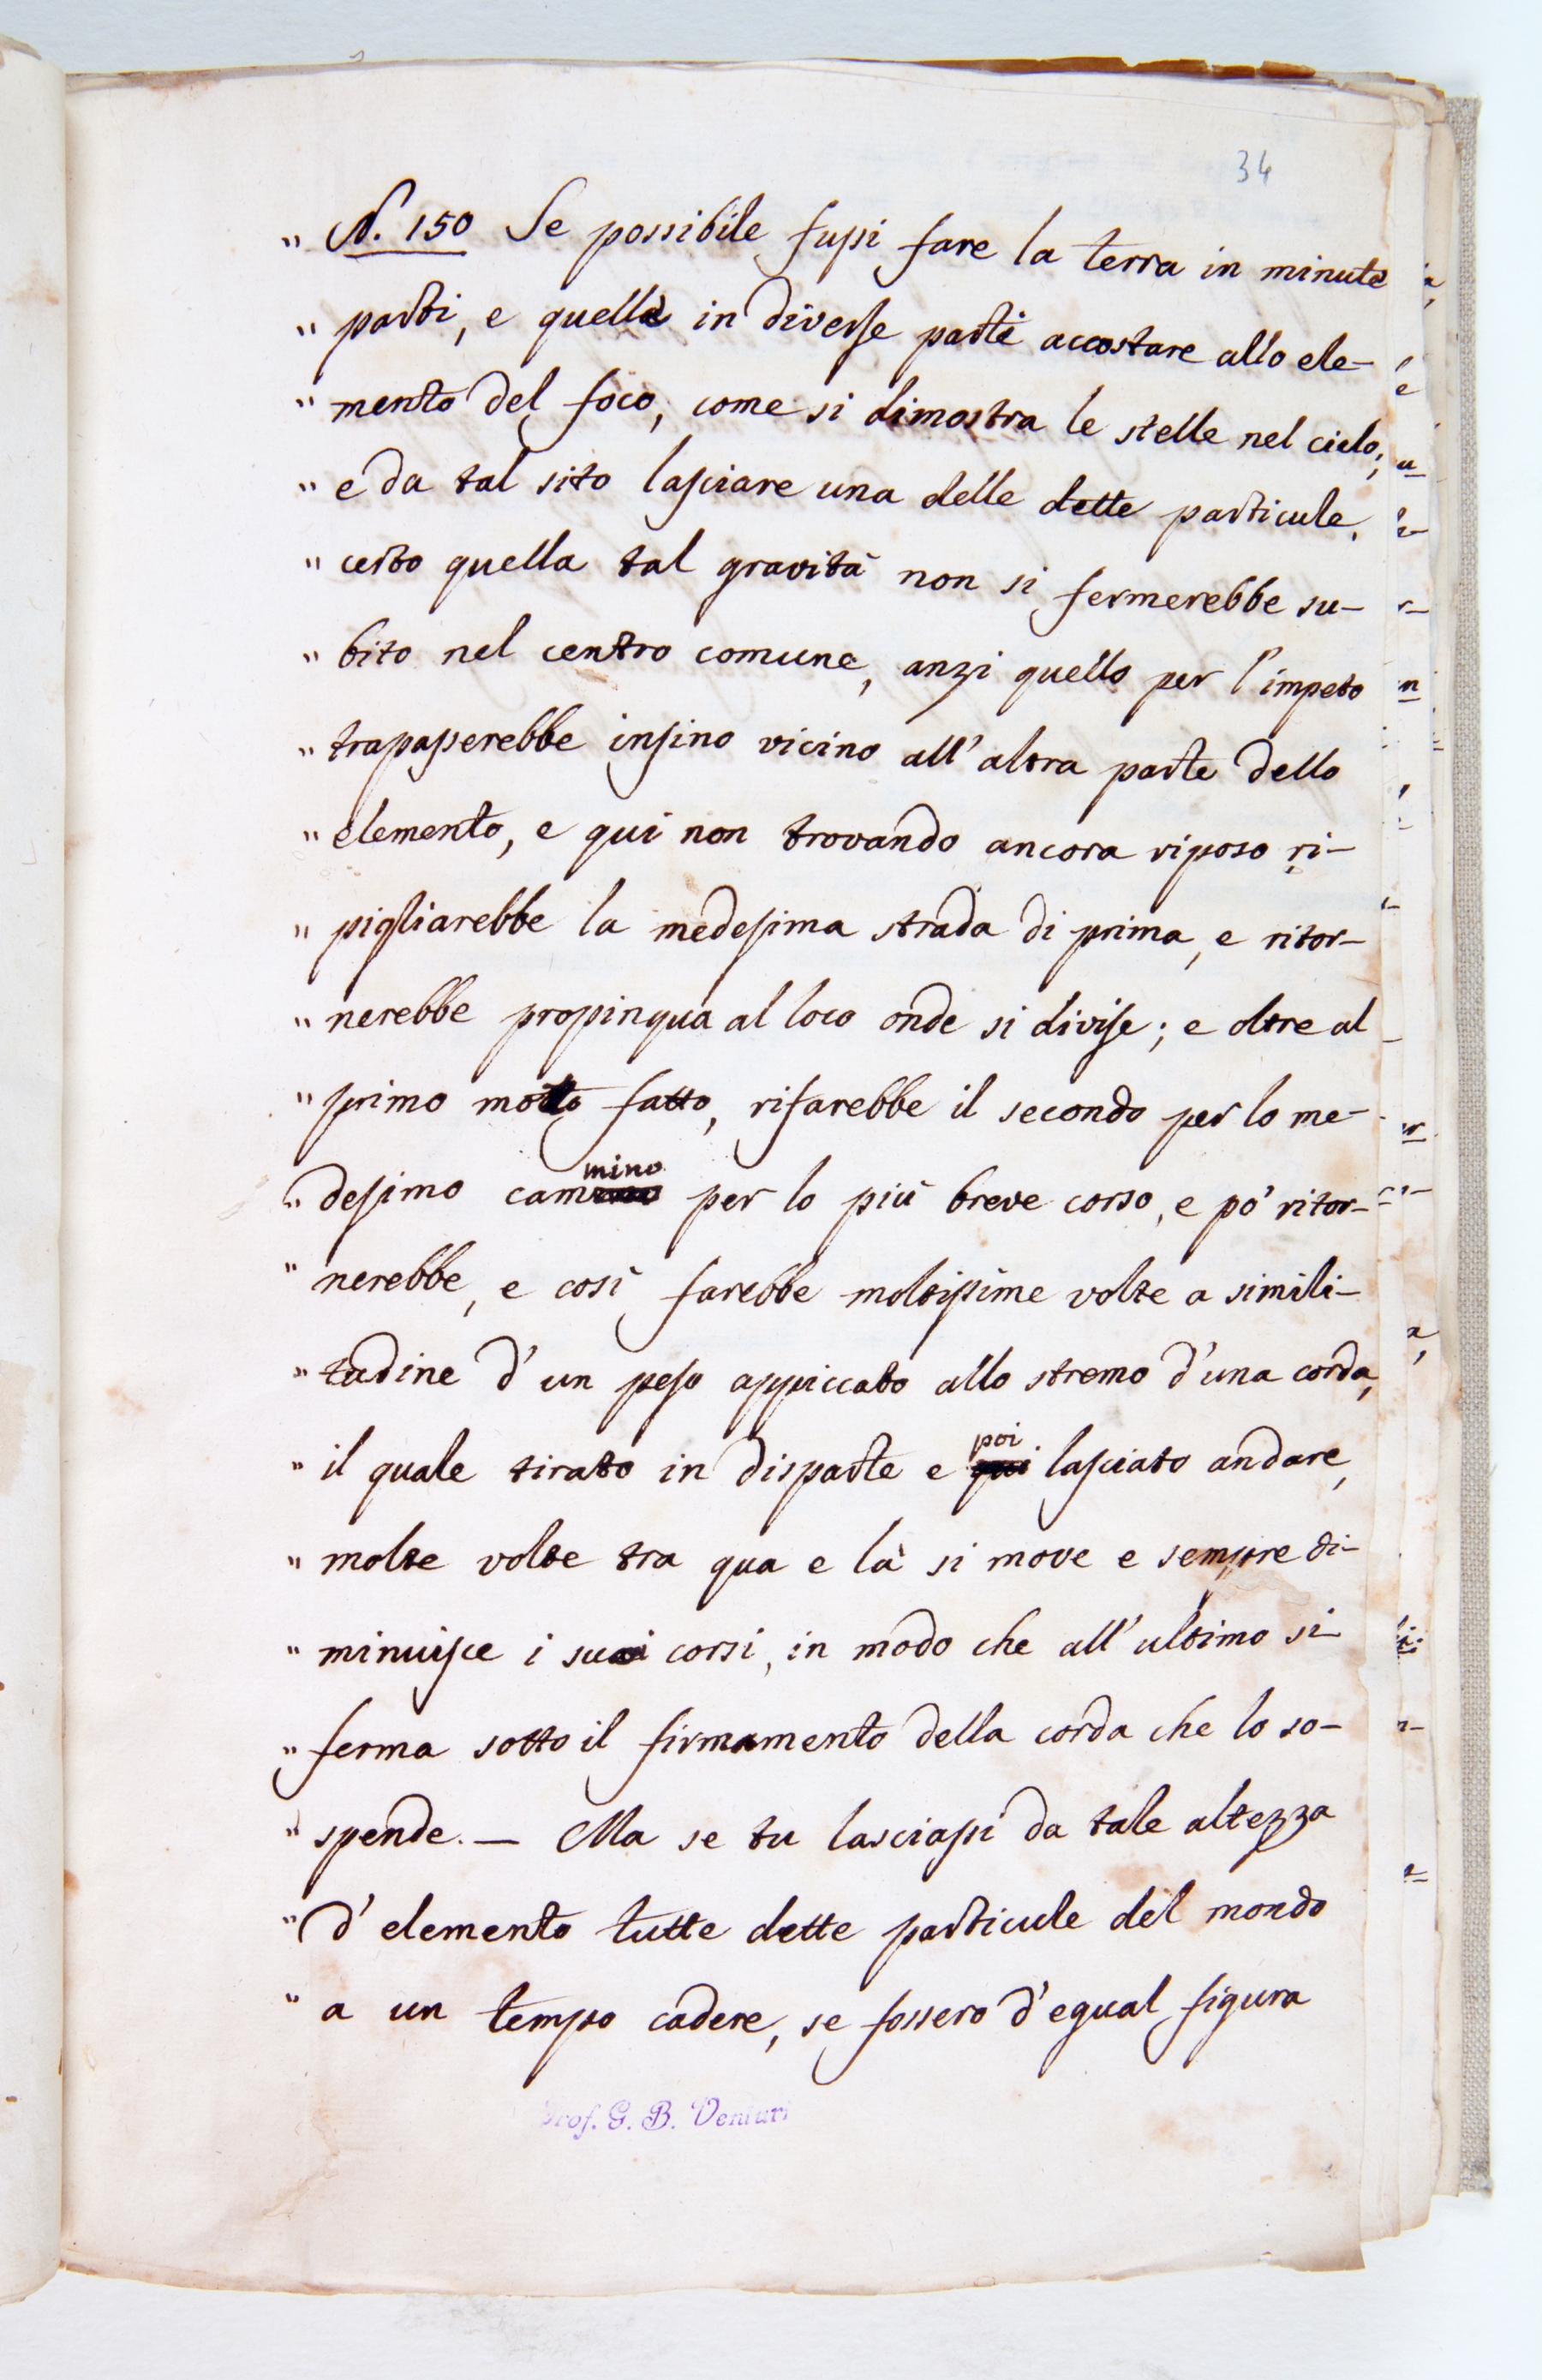 34
" N. 150 Se possibile fussi fare la terra in minute
" parti, e quelle in diverse parti accostare allo ele-
" mento del foco, come si dimostra le stelle nel cielo;
" e da tal sito lasciare una delle dette particule,
" certo quella tal gravità non si fermerebbe su-
" bito nel centro comune, anzi quello per l'impeto
" trapasserebbe insino vicino all'altra parte dello
" elemento, e qui non trovando ancora riposo ri-
" pigliarebbe la medesima strada di prima, e ritor-
" nerebbe propinqua al loco onde si divise; e oltre al
" primo moto fatto, rifarebbe il secondo per lo me-
" desimo cammino per lo più breve corso, e po' ritor-
" nerebbe, e così farebbe moltissime volte a simili-
" tudine d'un peso appiccato allo stremo d'una corda,
" il quale tirato in disparte e poi lasciato andare,
" molte volte tra qua e là si move e sempre di-
" minuisce i suoi corsi, in modo che all'ultimo si
" ferma sotto il firmamento della corda che lo so-
" spende. — Ma se tu lasciassi da tale altezza
" d'elemento tutte dette particule del mondo
" a un tempo cadere, se fossero d'egual figura
Prof. G. B. Venturi